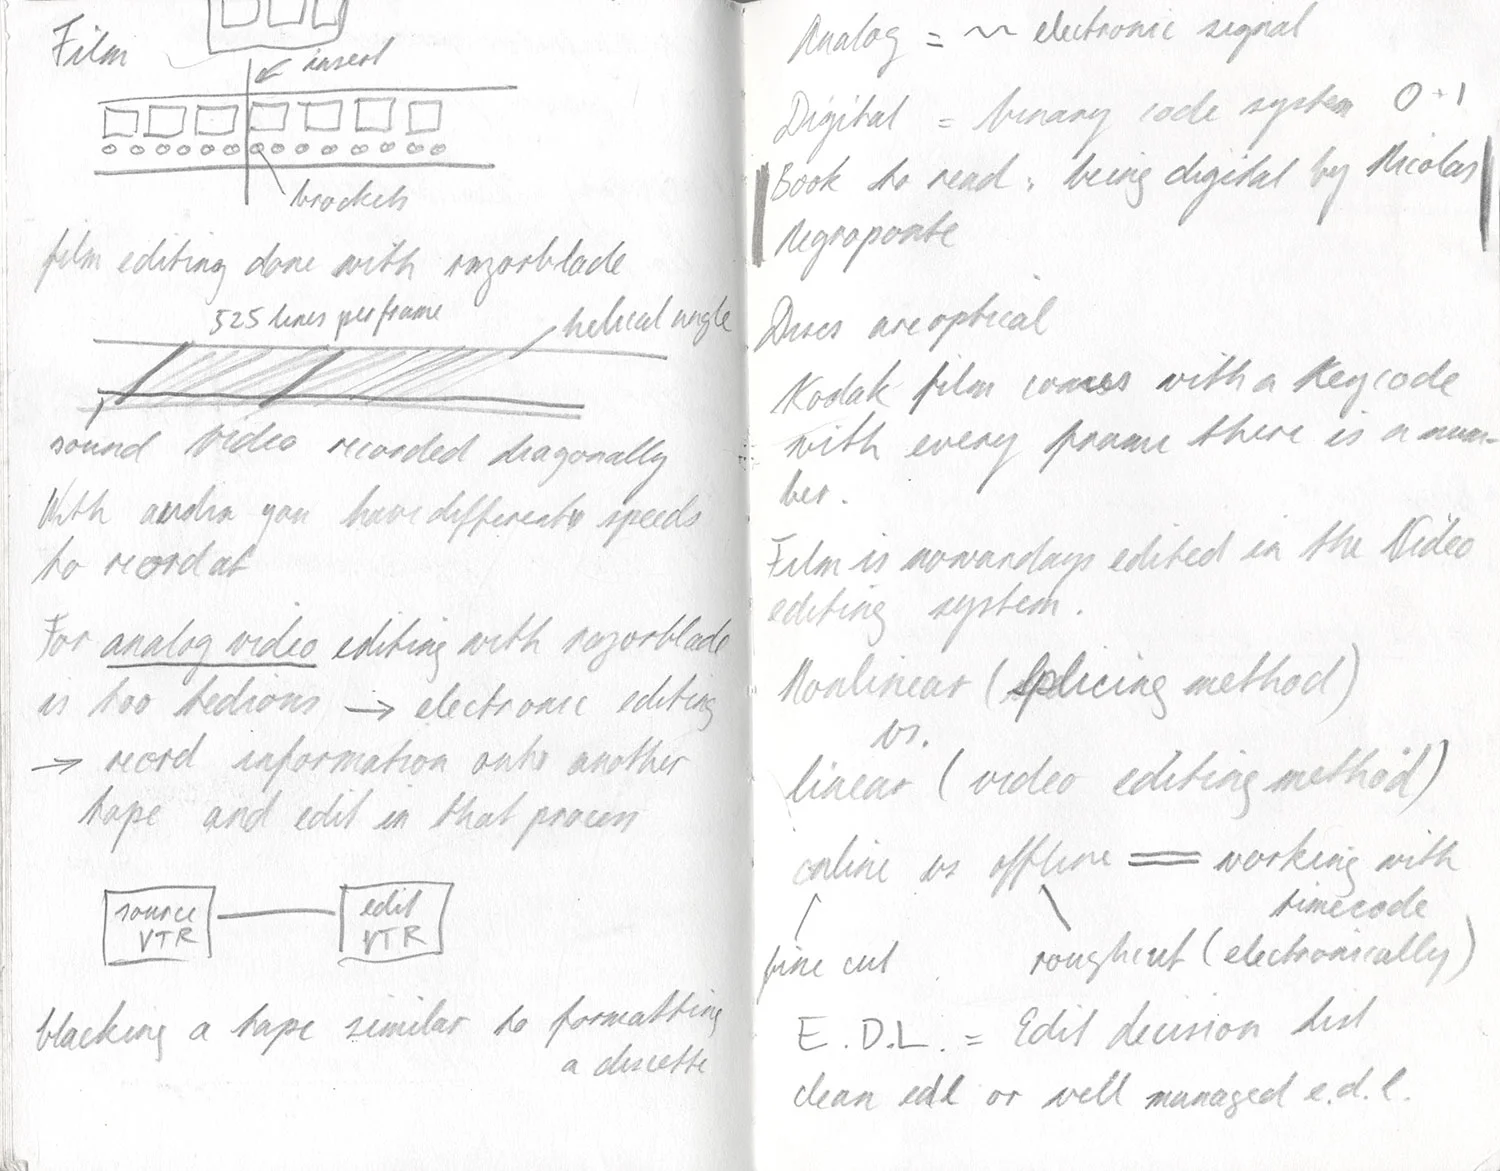 Film
insert
brockets
film editing done with razorblade
525 lines per frame
helical angle
sound video recorded diagonally
With audio you have different speeds
to record at
For analog video editing with razorblade
is too tedious → electronic editing
→ record information onto another
tape and edit in that process
source
VTR
edit
VTR
blacking a tape similar to formatting
a discette
Analog = ~~ electronic signal
Digital = binary code system 0+1
Book to read: being digital by Nicolas
Negroponte
Discs are optical
Kodak film comes with a Keycode
with every frame there is a num-
ber.
Film is nowardays edited in the Video
editing system.
Nonlinear (splicing method)
vs.
linear (video editing method)
online vs offline = working with
timecode
fine cut
roughcut (electronically)
E.D.L. = Edit decision list
clean edl or well managed e.d.l.